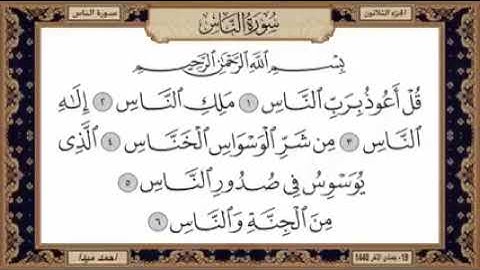 الجزء الثلاثون
سورة الناس
سُورَةُ النَّاسِ
بِسْمِ اللَّهِ الرَّحْمَٰنِ الرَّحِيمِ
قُلْ أَعُوذُ بِرَبِّ النَّاسِ ١ مَلِكِ النَّاسِ ٢ إِلَٰهِ
النَّاسِ ٣ مِن شَرِّ الْوَسْوَاسِ الْخَنَّاسِ ٤ الَّذِي
يُوَسْوِسُ فِي صُدُورِ النَّاسِ ٥
مِنَ الْجِنَّةِ وَالنَّاسِ ٦
1440